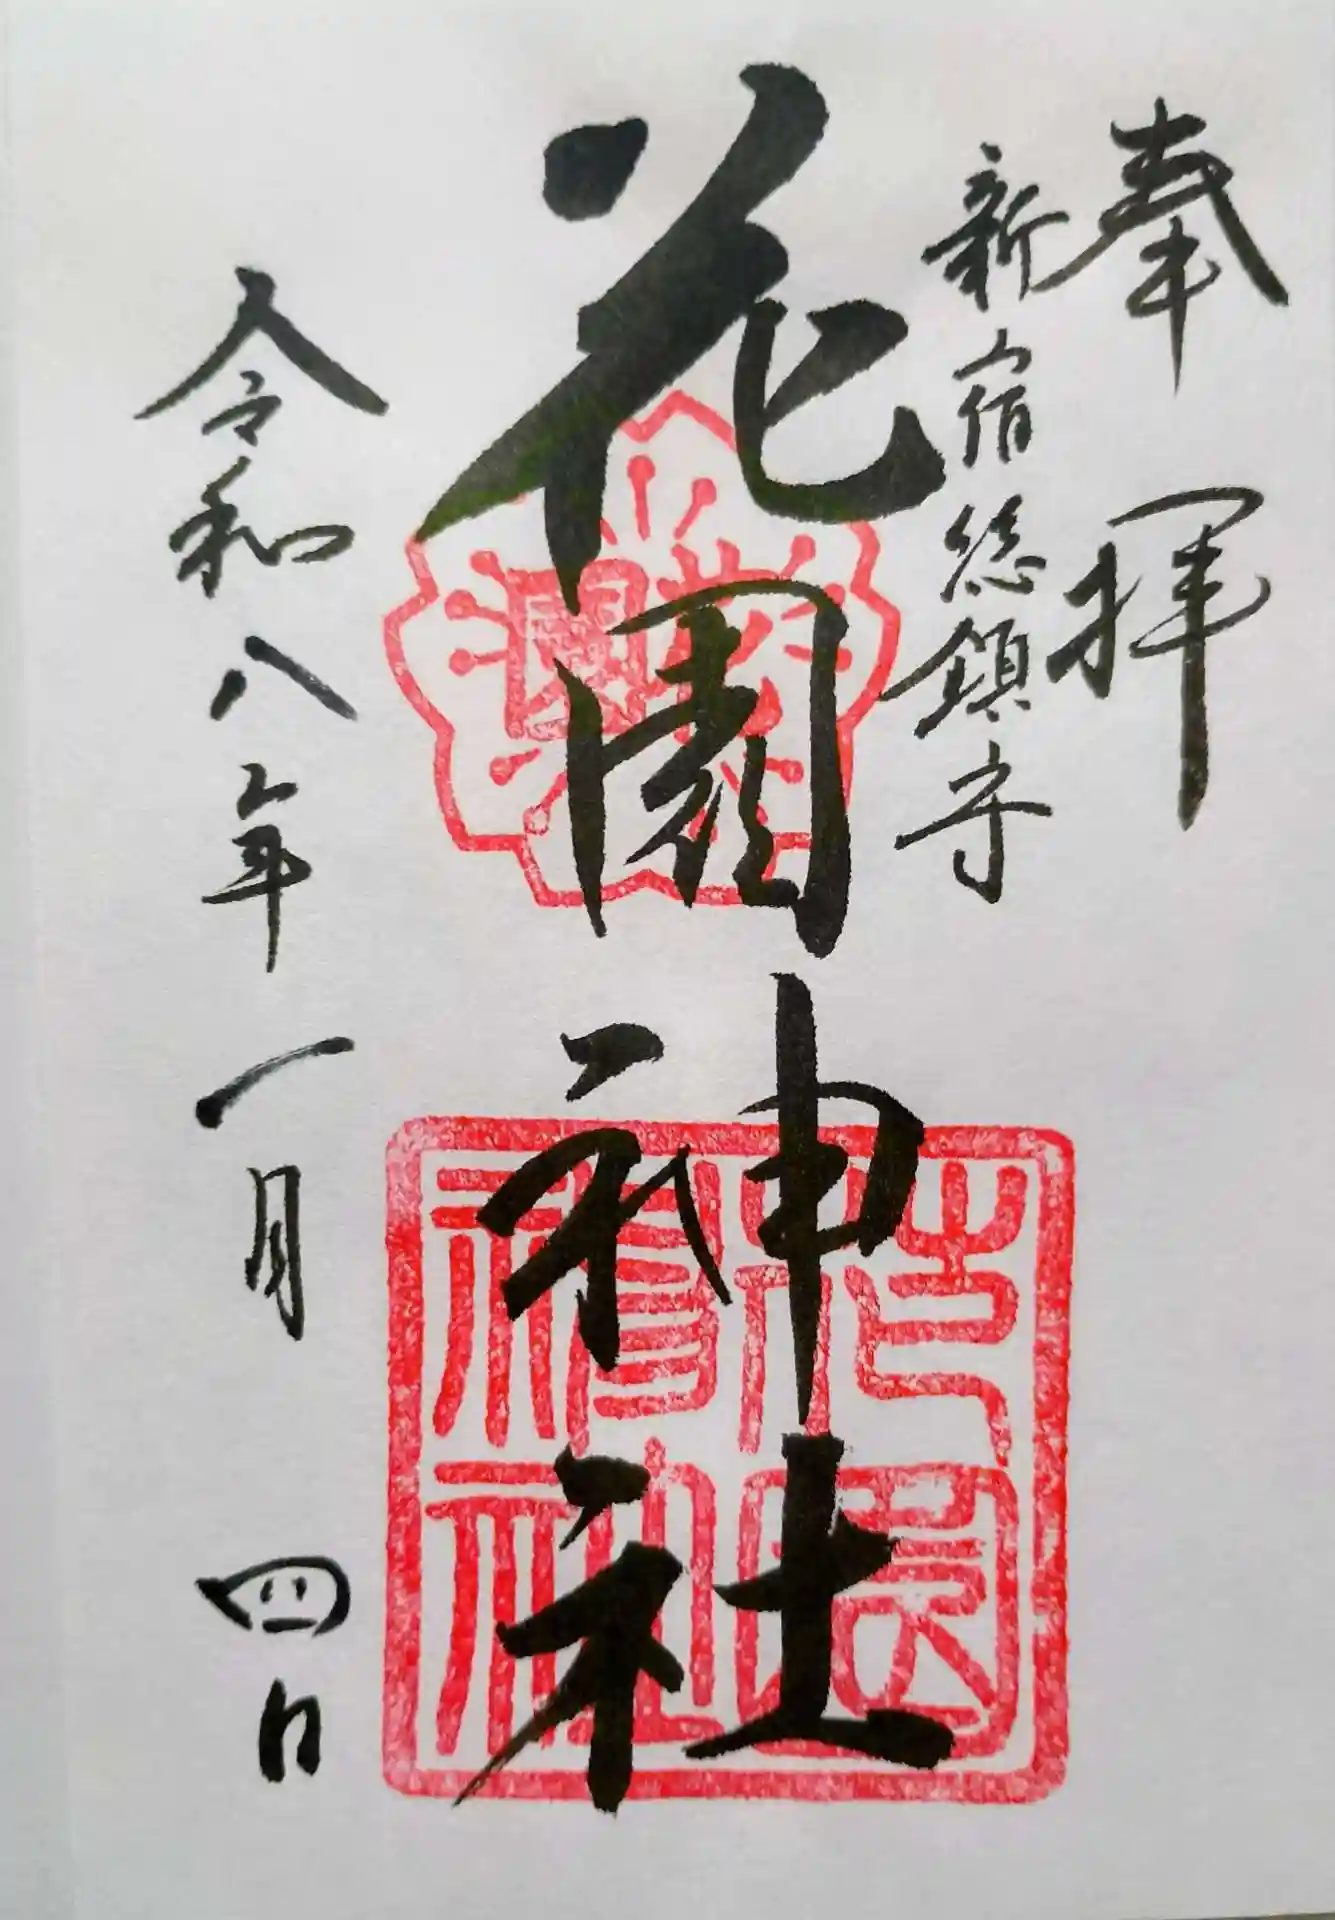 奉拝
新宿総鎮守
花園神社
令和八年一月四日
花園
花園神社